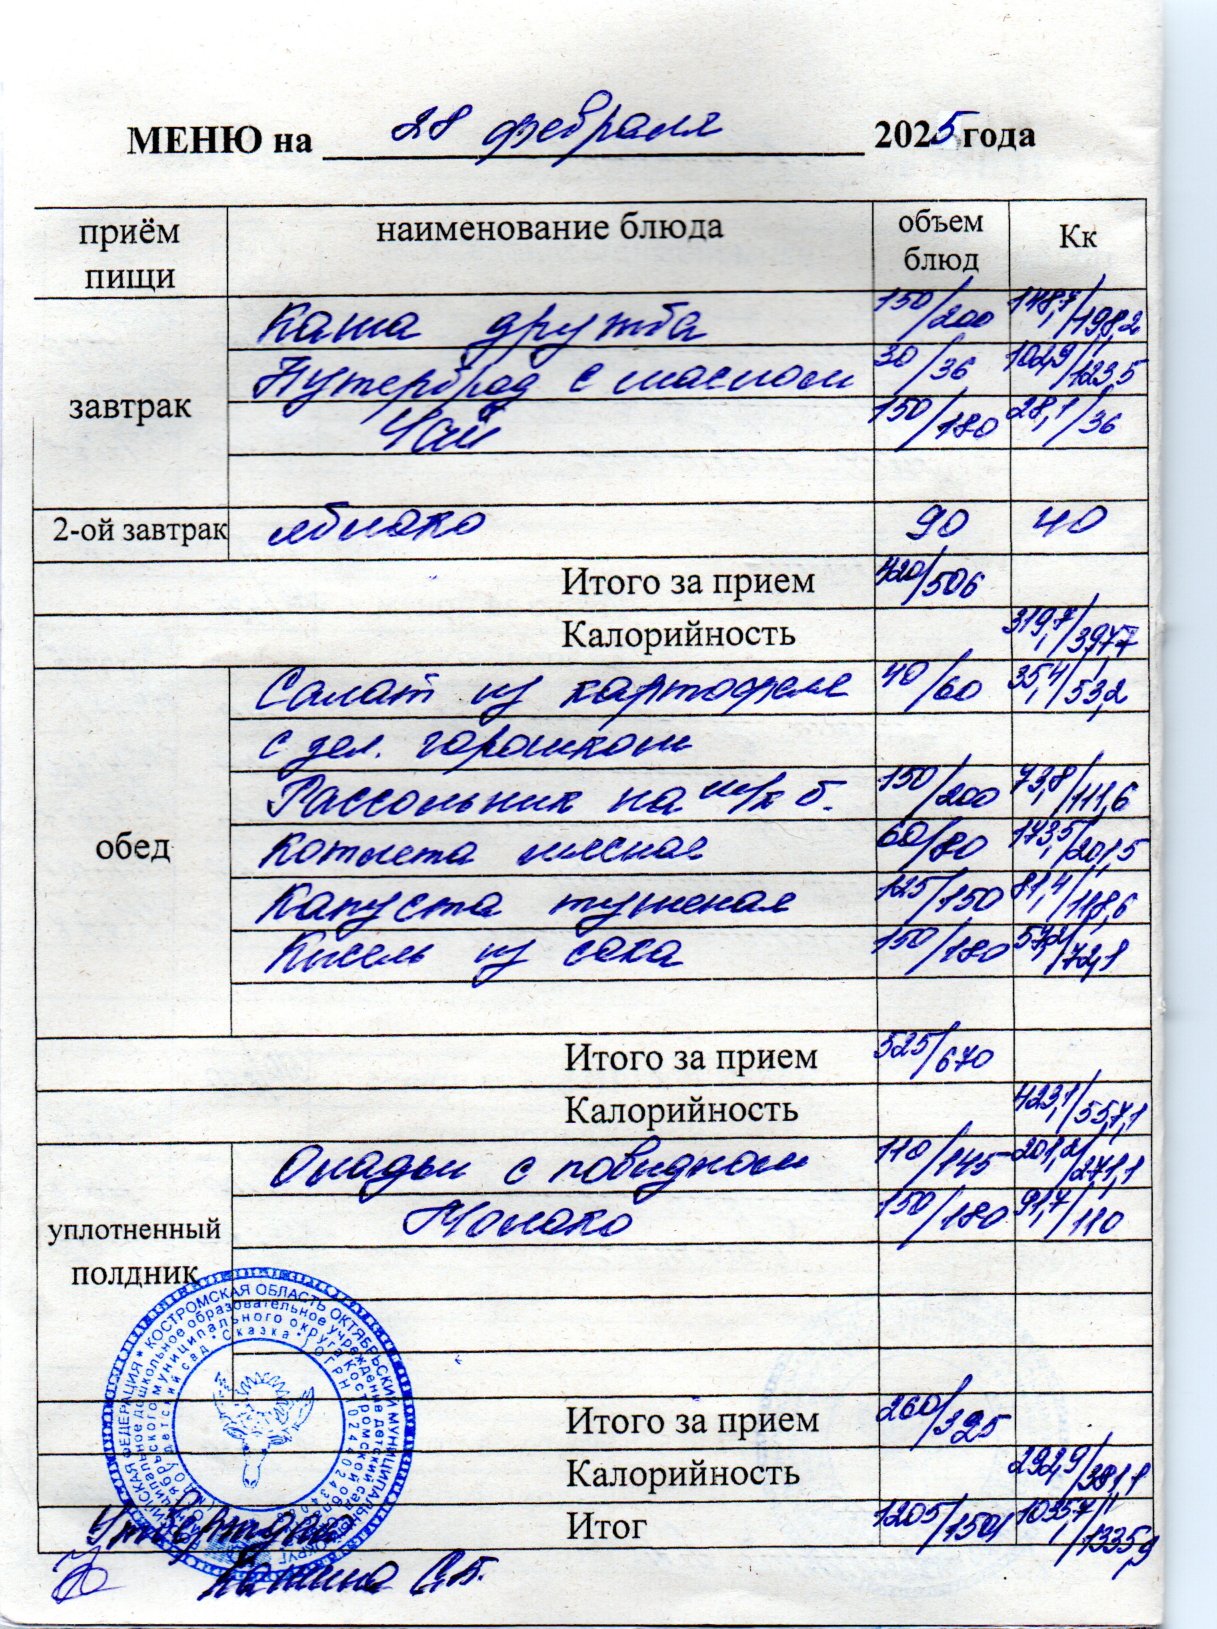 МЕНЮ на 28 февраля 2025 года
приём пищи наименование блюда объем блюд Кк
завтрак
Каша дружба 150/200 148,7/198,2
Бутерброд с маслом 30/36 102,9/123,5
Чай 150/180 28,1/36
2-ой завтрак яблоко 90 40
Итого за прием 420/506
Калорийность 319,7/397,7
обед
Салат из картофеля 40/60 35,4/53,2
с зел. горошком
Рассольник на м/к б. 150/200 73,8/111,6
Котлета мясная 60/80 173,5/201,5
Капуста тушеная 125/150 81,4/118,6
Кисель из сока 150/180 57,2/72,1
Итого за прием 525/670
Калорийность 423,1/557,1
уплотненный полдник
Оладьи с повидлом 110/145 201,2/271,1
Молоко 150/180 91,7/110
Итого за прием 260/325
Калорийность 292,9/381,1
Итог 1205/1501 1035,7/1335,9
КОСТРОМСКАЯ ОБЛАСТЬ ОКТЯБРЬСКИЙ МУНИЦИПАЛЬНЫЙ ОКРУГ
дошкольное образовательное учреждение детский сад
муниципального округа Костромской области
детский сад "Сказка"
ОГРН
С.В.